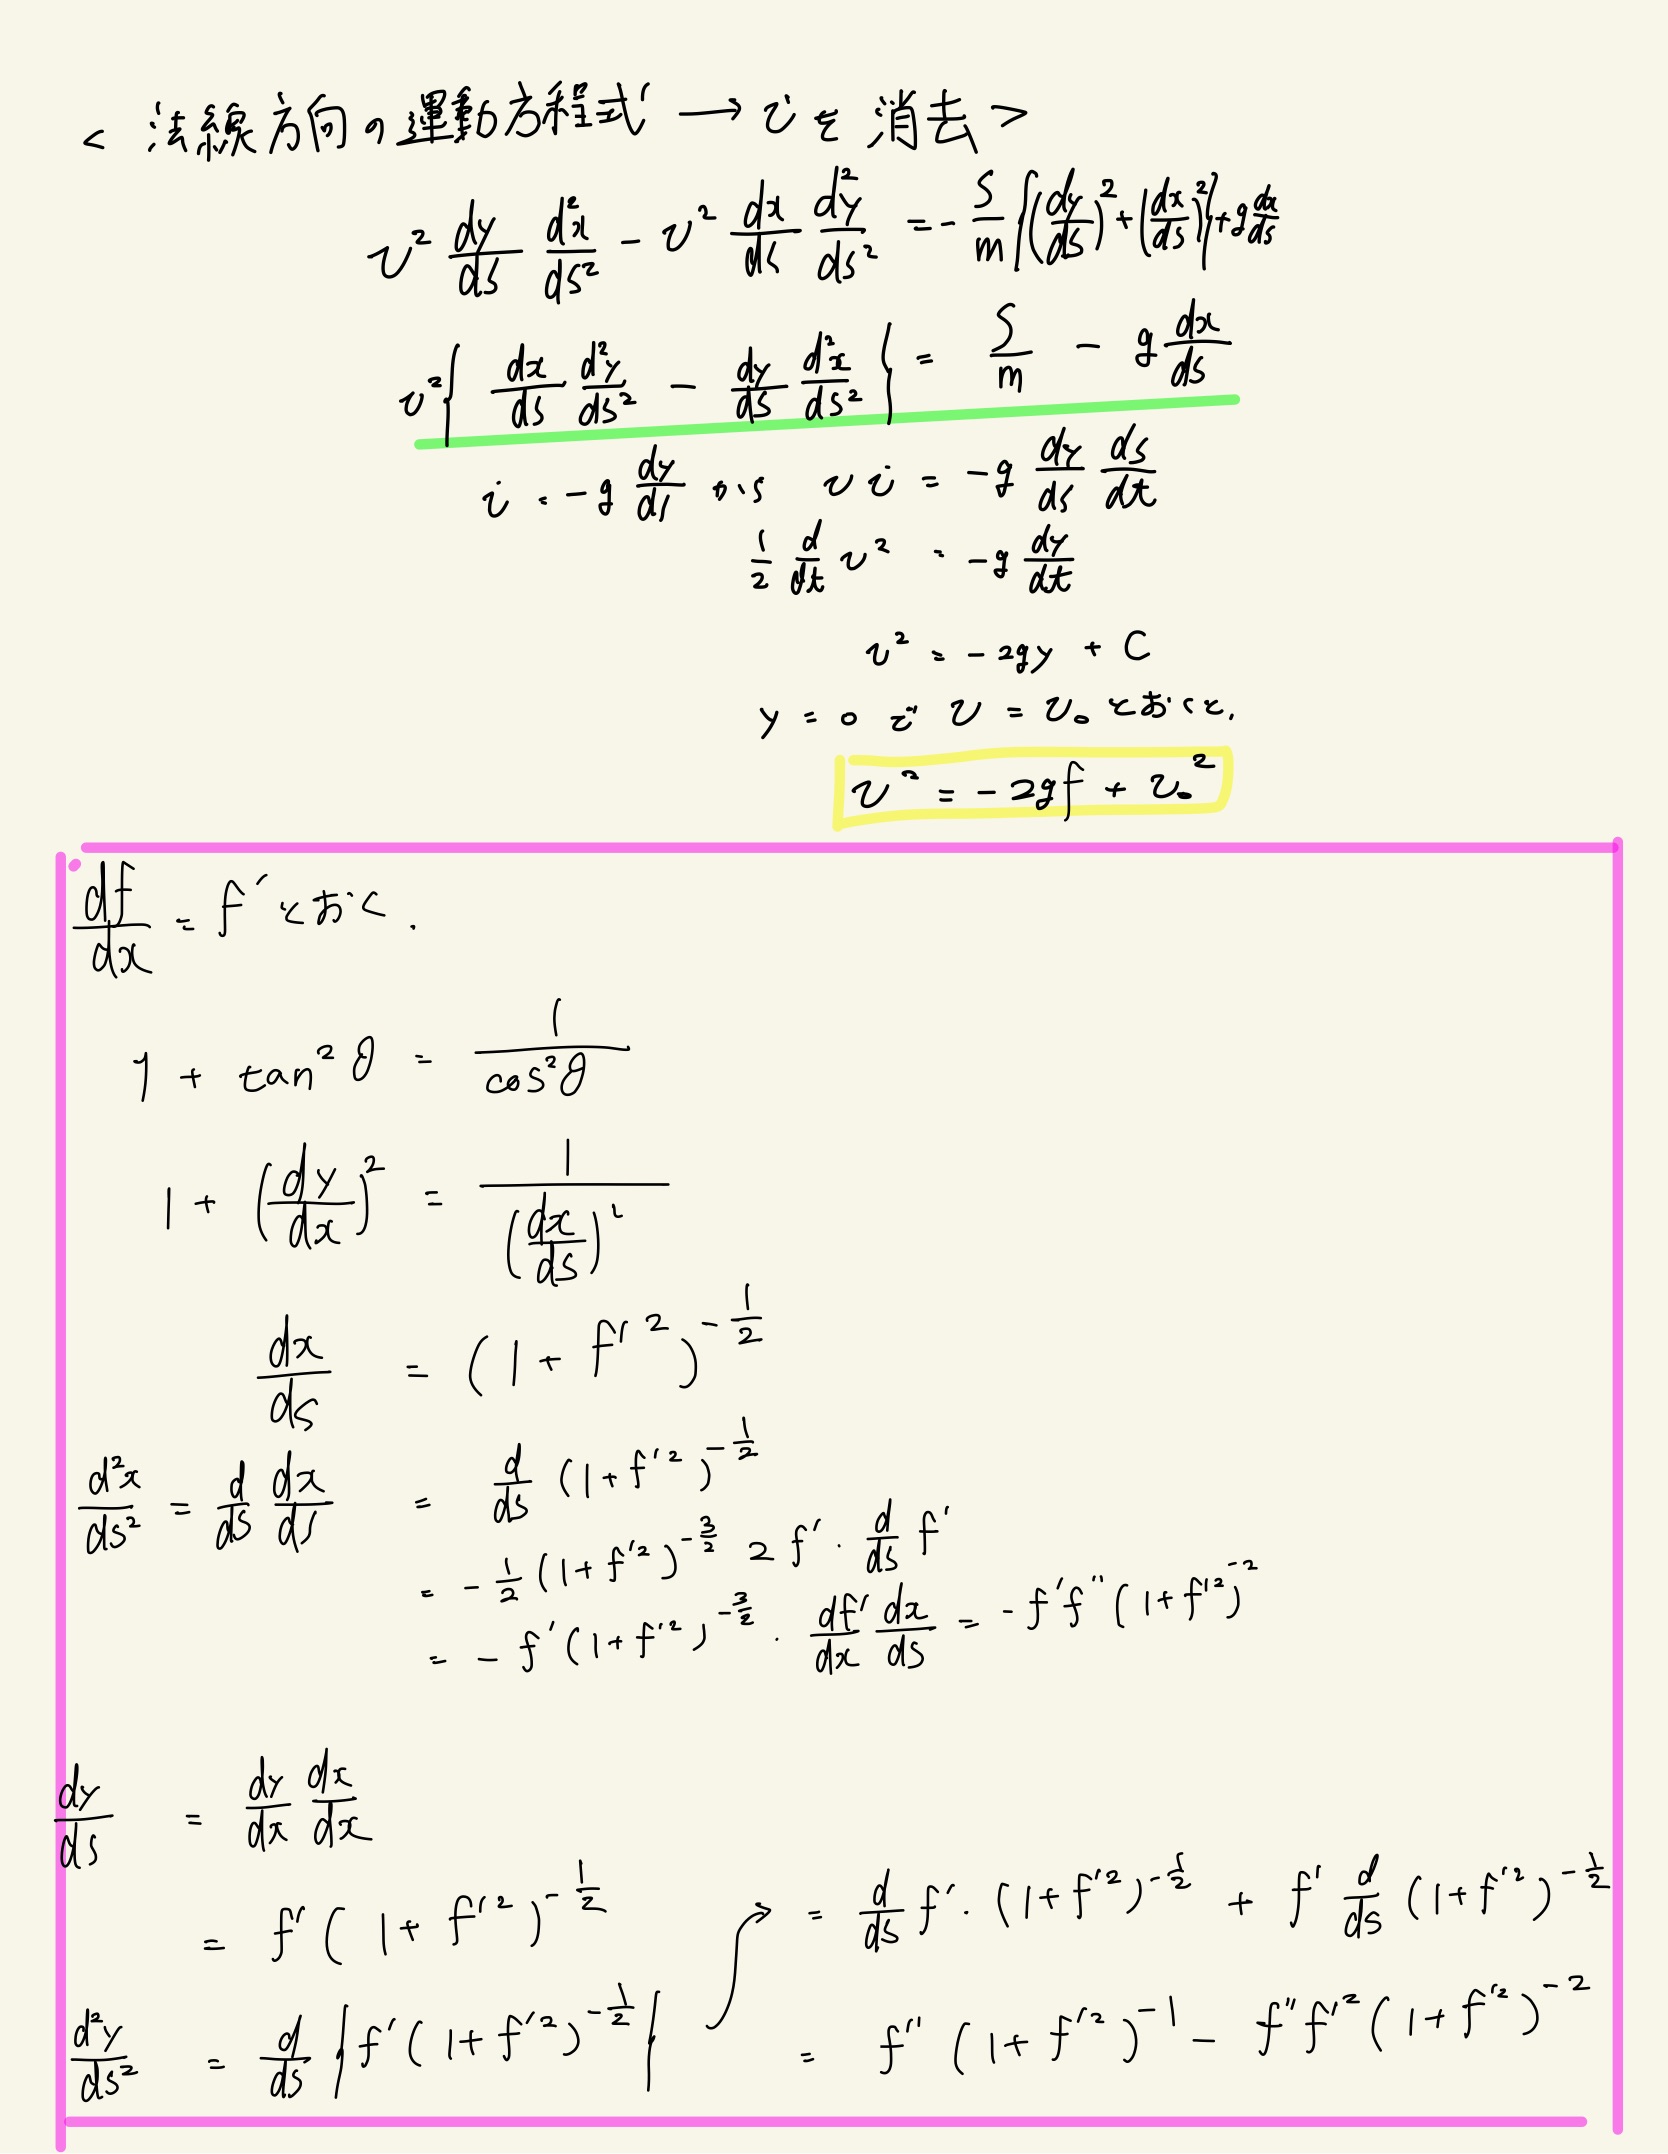 < 法線方向の運動方程式 → v̇を消去 >
v² dy/ds d²x/ds² - v² dx/ds d²y/ds² = - S/m {(dy/ds)² + (dx/ds)²} + g dx/ds
v² { dx/ds d²y/ds² - dy/ds d²x/ds² } = S/m - g dx/ds
v̇ = -g dy/ds から v v̇ = -g dy/ds ds/dt
1/2 d/dt v² = -g dy/dt
v² = -2gy + C
y = 0 で v = v₀ とおくと,
v² = -2gf + v₀²
df/dx = f′ とおく.
1 + tan²θ = 1/cos²θ
1 + (dy/dx)² = 1/(dx/ds)²
dx/ds = (1 + f′²)^(-1/2)
d²x/ds² = d/ds dx/ds = d/ds (1+f′²)^(-1/2)
= -1/2 (1+f′²)^(-3/2) 2f′· d/ds f′
= -f′(1+f′²)^(-3/2) · df′/dx dx/ds = -f′f″(1+f′²)^(-2)
dy/ds = dy/dx dx/dx
= f′(1+f′²)^(-1/2)
d²y/ds² = d/ds {f′(1+f′²)^(-1/2)}
= d/ds f′·(1+f′²)^(-1/2) + f′ d/ds (1+f′²)^(-1/2)
= f″(1+f′²)^(-1) - f″f′²(1+f′²)^(-2)